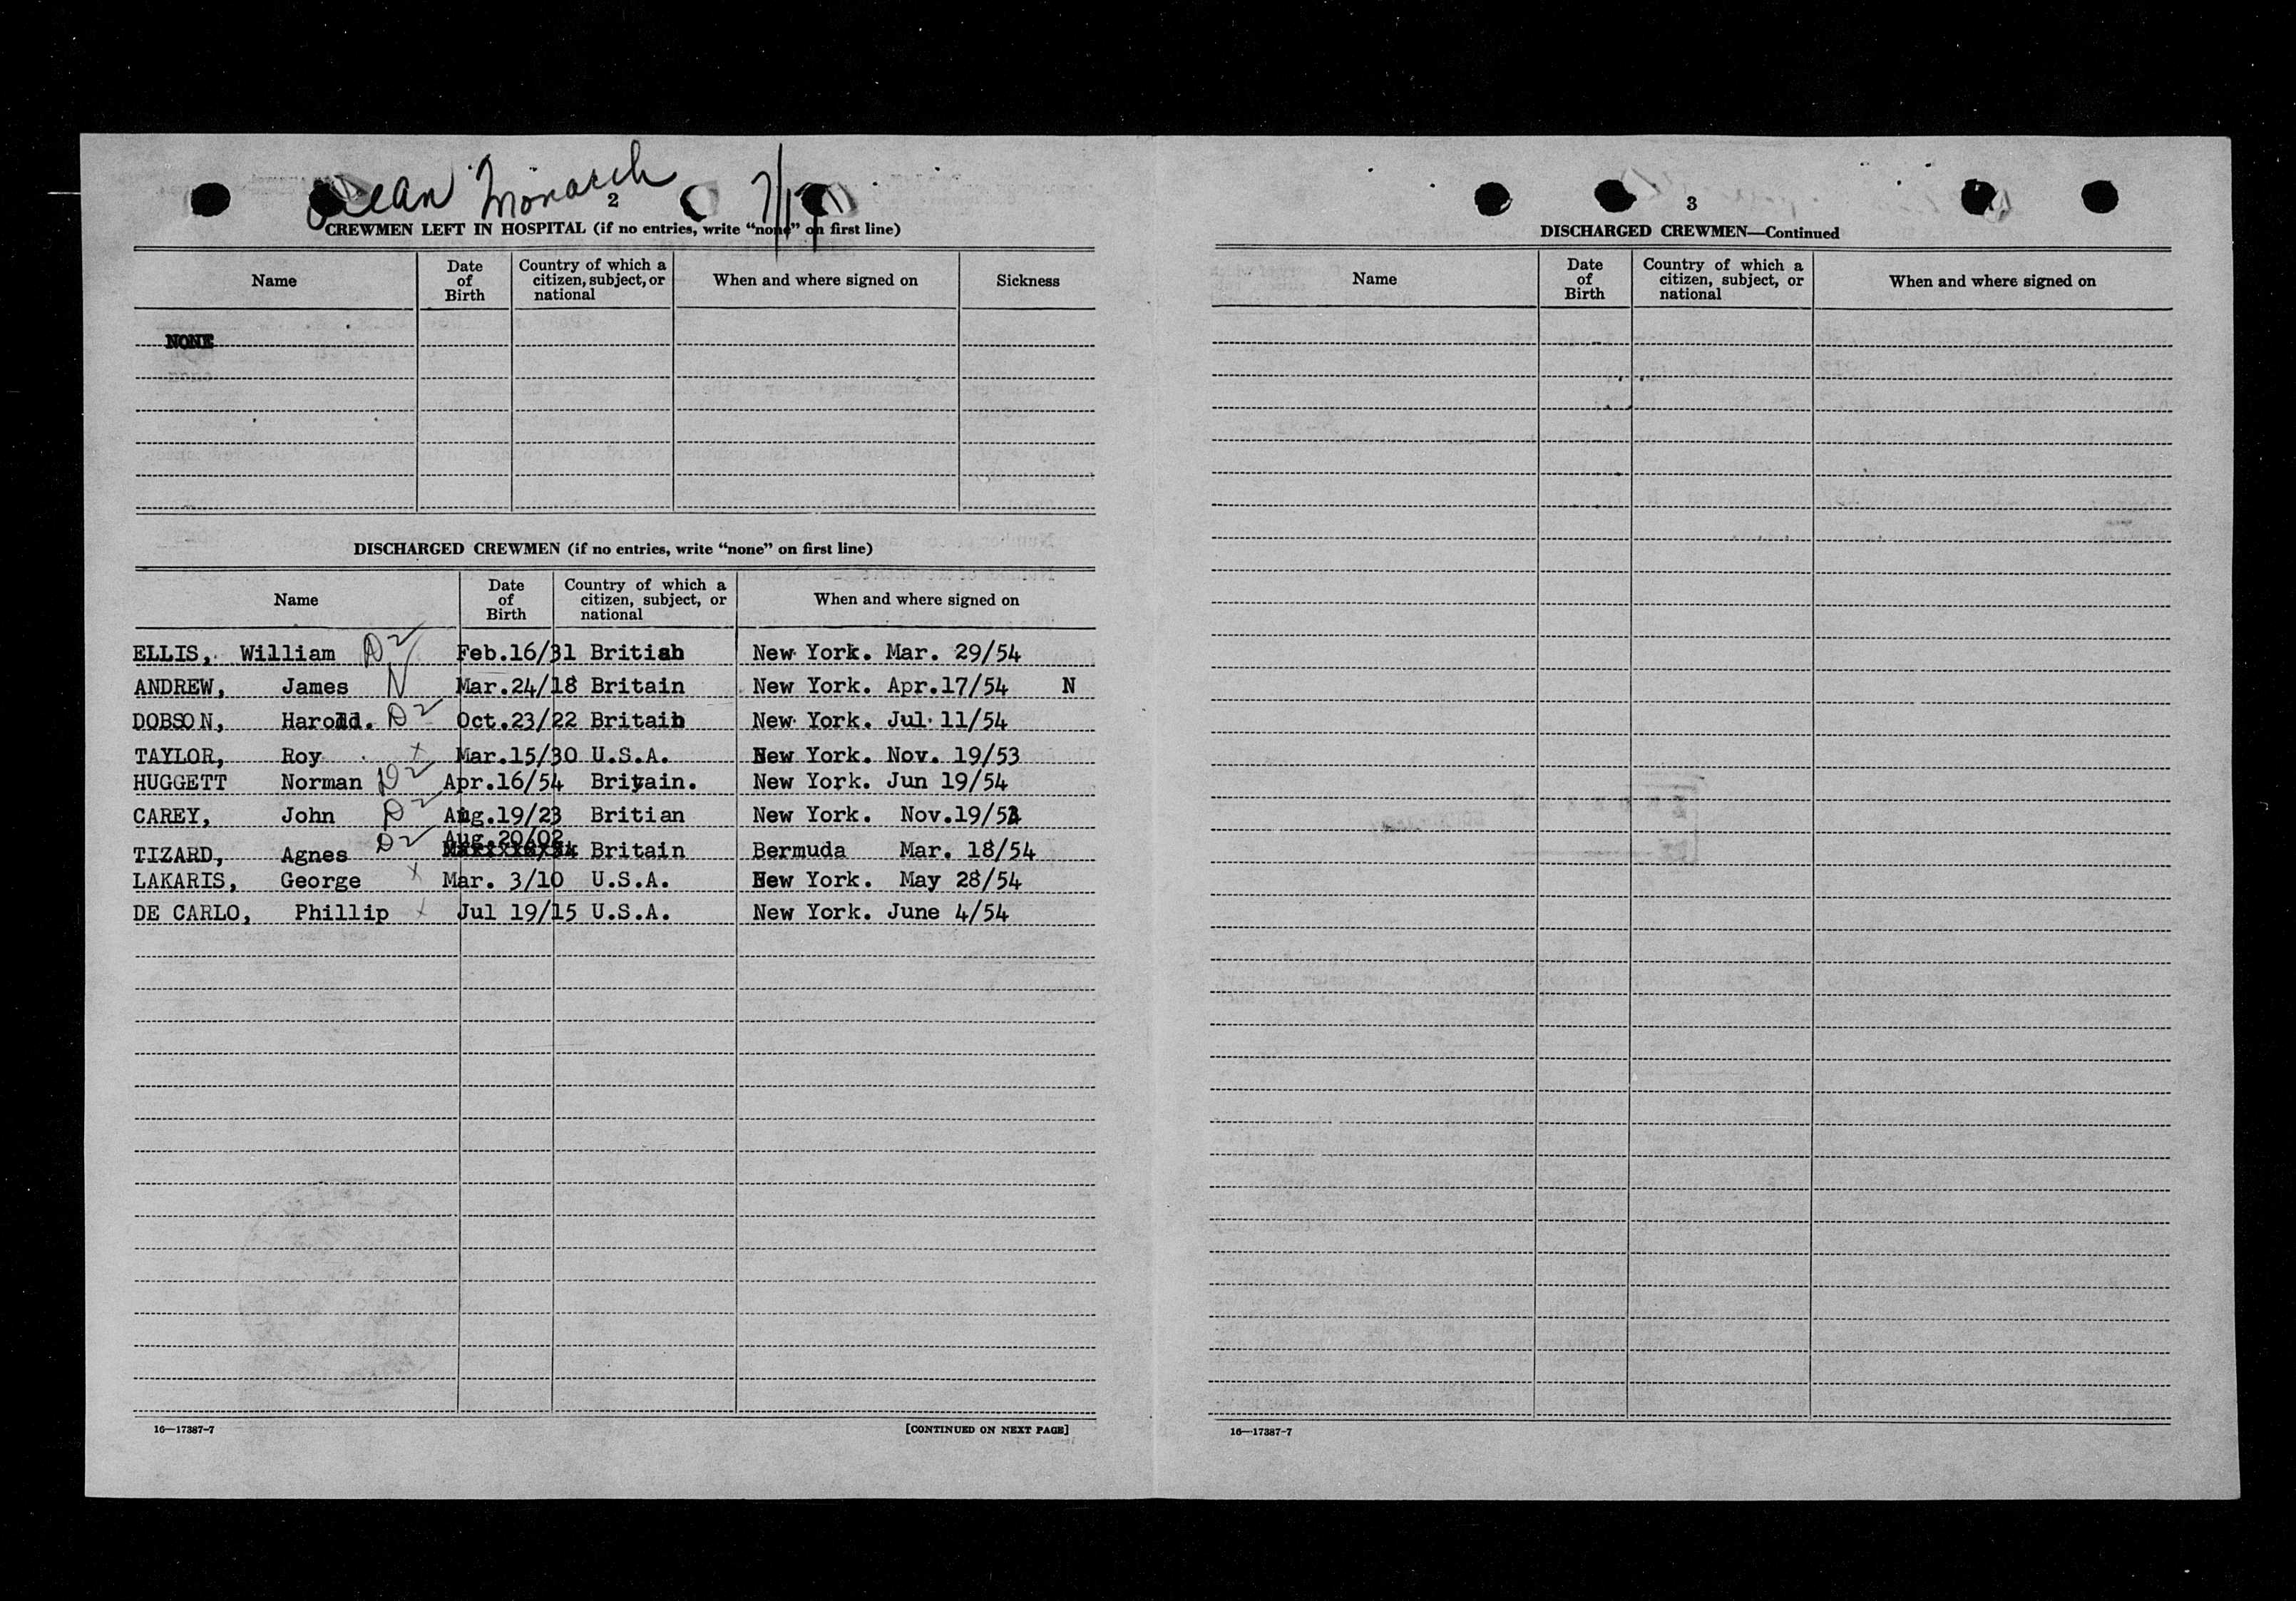 Ocean Monarch
2
CREWMEN LEFT IN HOSPITAL (if no entries, write "none" on first line)
Name Date of Birth Country of which a citizen, subject, or national When and where signed on Sickness
NONE
DISCHARGED CREWMEN (if no entries, write "none" on first line)
Name Date of Birth Country of which a citizen, subject, or national When and where signed on
ELLIS, William D2 Feb.16/31 Britiah New York. Mar. 29/54
ANDREW, James N Mar.24/18 Britain New York. Apr.17/54 N
DOBSON, Harold. D2 Oct.23/22 Britain New York. Jul 11/54
TAYLOR, Roy x Mar.15/30 U.S.A. New York. Nov. 19/53
HUGGETT Norman D2 Apr.16/54 Britain. New York. Jun 19/54
CAREY, John D2 Aug.19/23 Britian New York. Nov.19/53
TIZARD, Agnes D2 Aug.20/02 Britain Bermuda Mar. 18/54
LAKARIS, George x Mar. 3/10 U.S.A. New York. May 28/54
DE CARLO, Phillip x Jul 19/15 U.S.A. New York. June 4/54
16—17387-7 [CONTINUED ON NEXT PAGE]
3
DISCHARGED CREWMEN—Continued
Name Date of Birth Country of which a citizen, subject, or national When and where signed on
16—17387-7